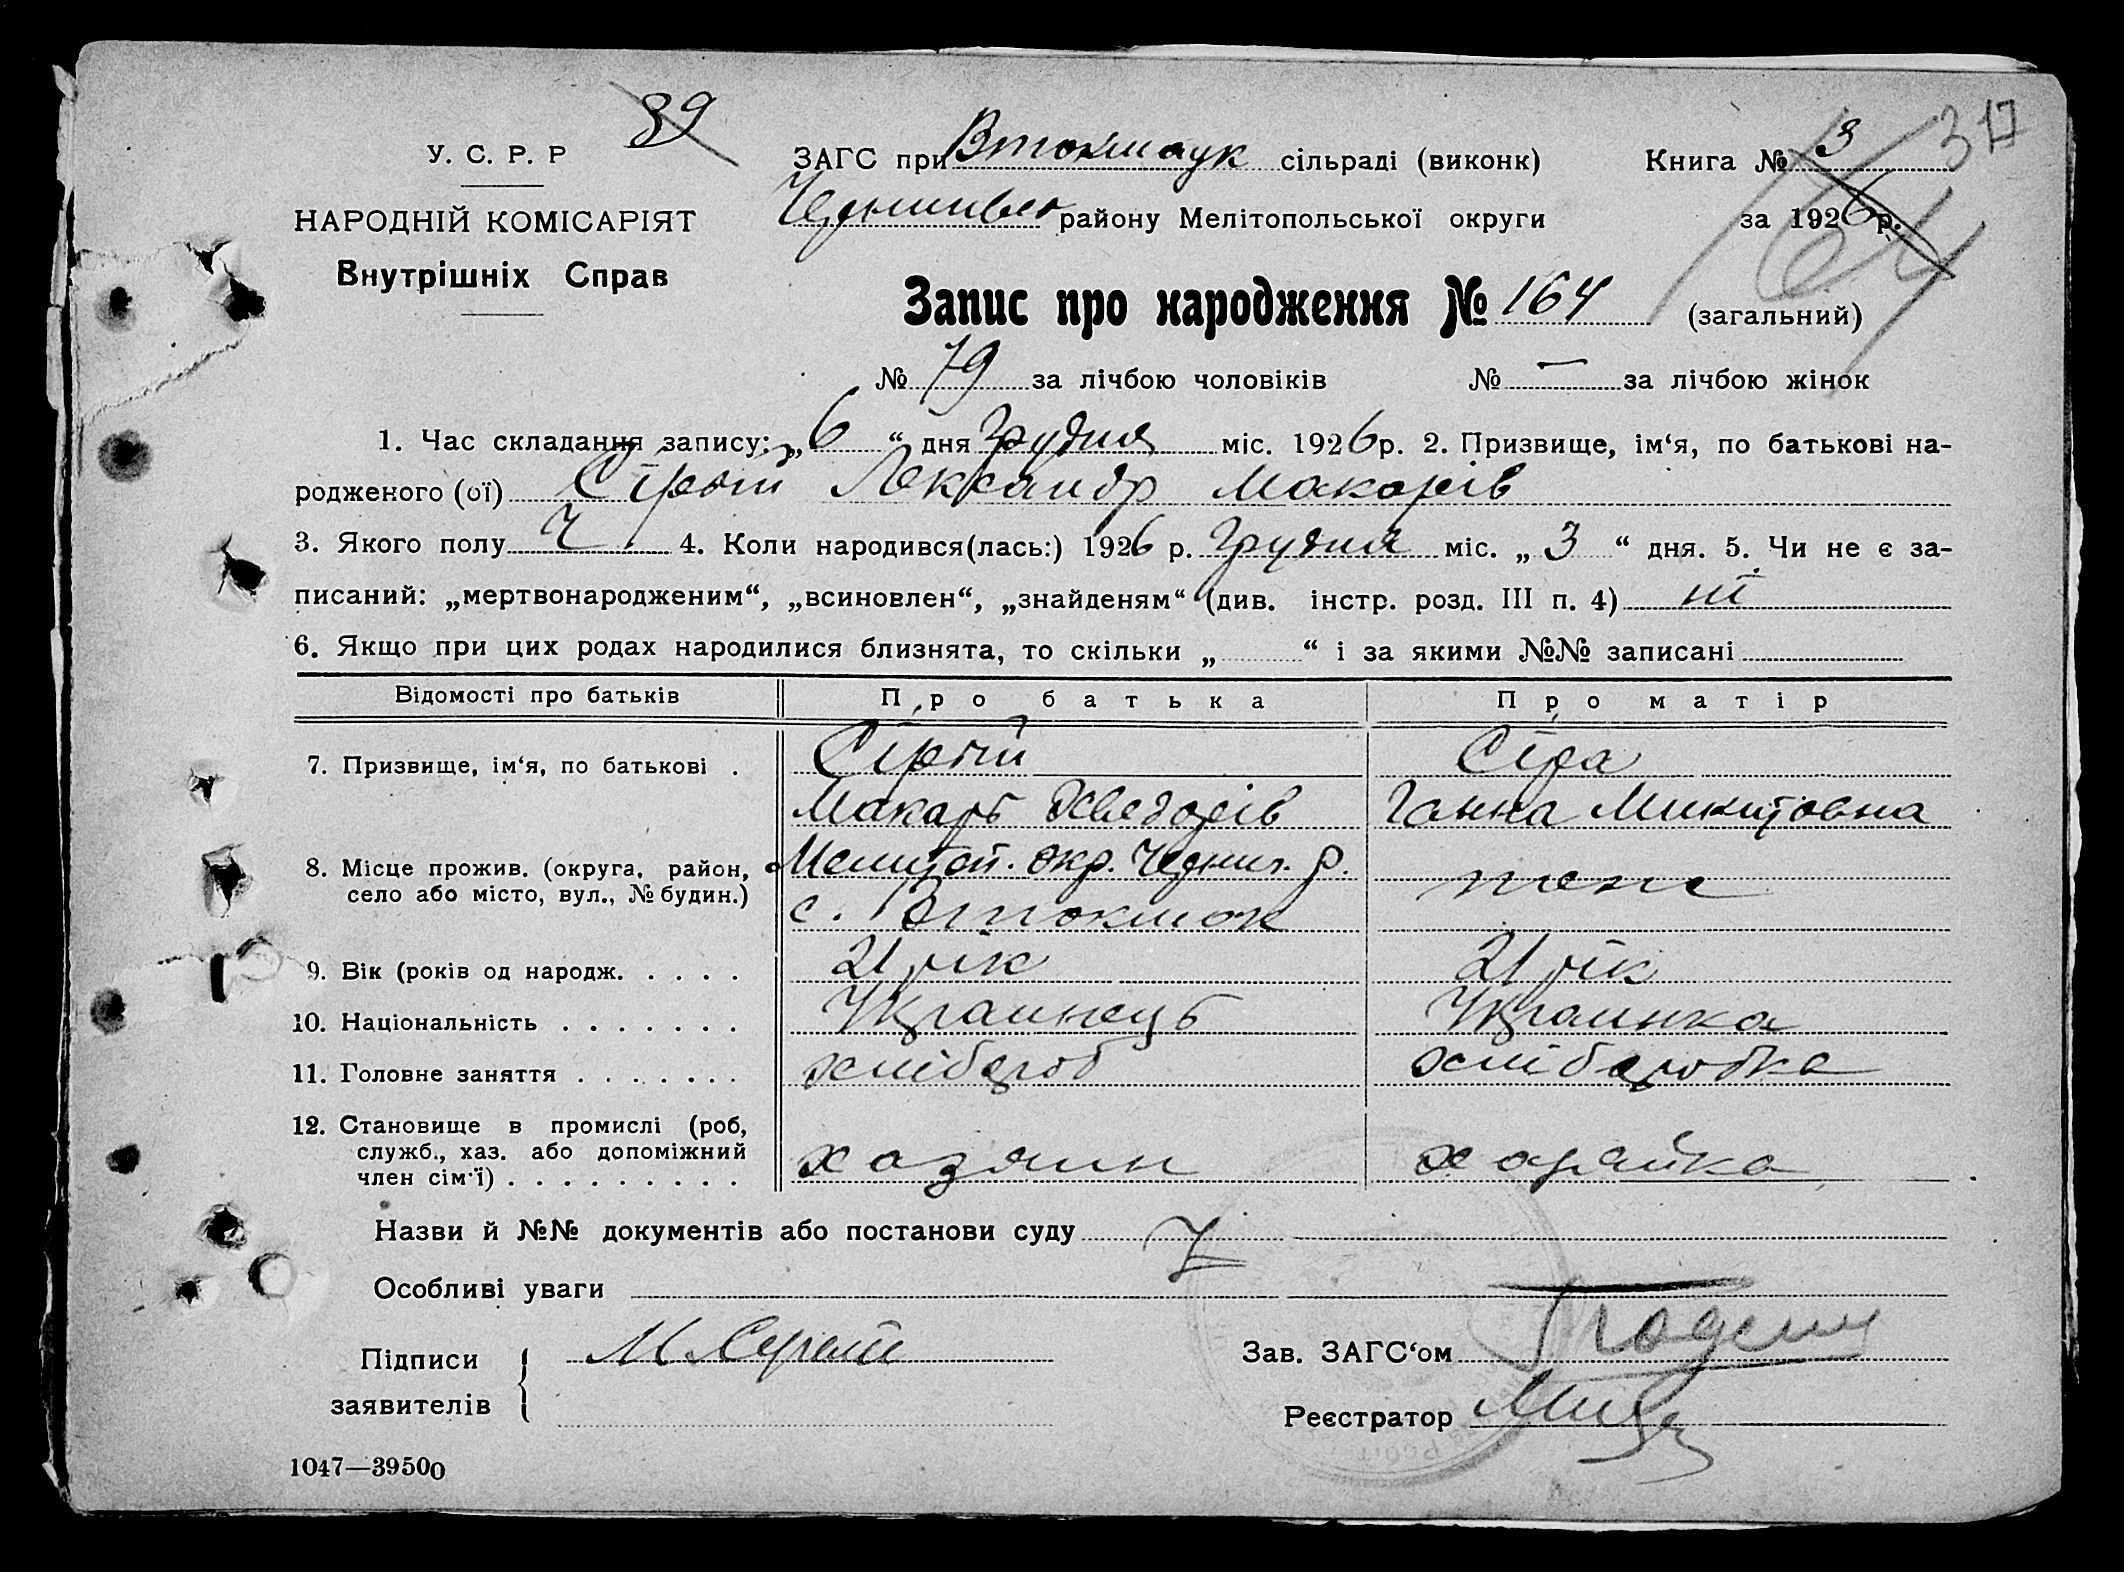 39
317
У. С. Р. Р
НАРОДНІЙ КОМІСАРІЯТ
Внутрішніх Справ
ЗАГС при Втокмаук сільраді (виконк)
Книга № 3
району Мелітопольської округи
за 1926 р.
164
Запис про народження № 164 (загальний)
№ 79 за лічбою чоловіків № — за лічбою жінок
1. Час складання запису: „6“ дня Грудня міс. 1926 р. 2. Призвище, ім‘я, по батькові на-
родженого (ої) Сірый Лександр Макарів
3. Якого полу Ч 4. Коли народився(лась:) 1926 р. Грудня міс. „3“ дня. 5. Чи не є за-
писаний: „мертвонародженим“, „всиновлен“, „знайденям“ (див. інстр. розд. III п. 4) ні
6. Якщо при цих родах народилися близнята, то скільки „ “ і за якими №№ записані
Відомості про батьків Про батька Про матір
7. Призвище, ім‘я, по батькові . Сірый Сіра
Макарь Хведорів Ганна Микитовна
8. Місце прожив. (округа, район, Мелитоп. окр. Черниг. р.
село або місто, вул., № будин.) с. Втокмак тоже
9. Вік (років од народж. . . . . 21 рік 21 рік
10. Національність . . . . . . . Украинець Украинка
11. Головне заняття . . . . . . . хлібороб хліборобка
12. Становище в промислі (роб,
служб., хаз. або допоміжний хазяин хазяйка
член сім‘ї) . . . . . . . . .
Назви й №№ документів або постанови суду
Особливі уваги
Підписи М Серый
заявителів
Зав. ЗАГС‘ом
Реєстратор
1047—39500